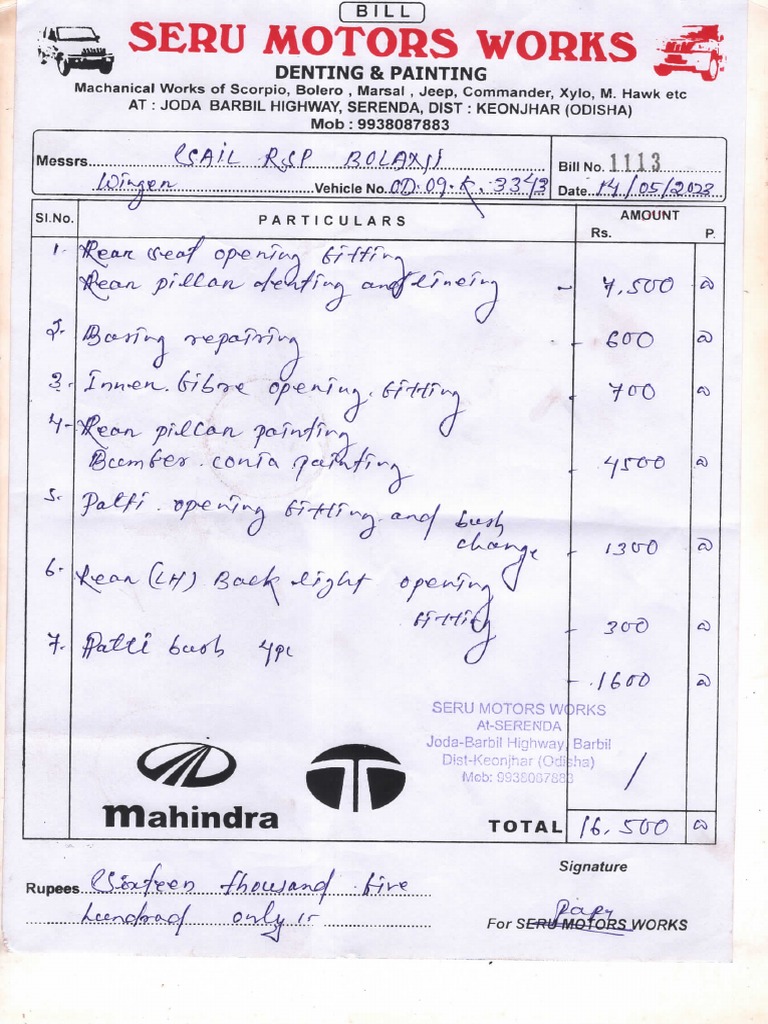 BILL
SERU MOTORS WORKS
DENTING & PAINTING
Machanical Works of Scorpio, Bolero , Marsal , Jeep, Commander, Xylo, M. Hawk etc
AT : JODA BARBIL HIGHWAY, SERENDA, DIST : KEONJHAR (ODISHA)
Mob : 9938087883
Messrs. SAIL RSP BOLANI
Bill No. 1113
Vehicle No. OD.09.K.3343
Date 14/05/2023
Sl.No. PARTICULARS AMOUNT
Rs. P.
1- Rear seat opening fitting
Rear pillar denting and lineing - 7,500
2- Boring repairing - 600
3- Inner fibre opening fitting - 700
4- Rear pillar painting
Bumber conia painting - 4500
5- Patti opening fitting and bush
change - 1300
6- Rear (LH) Back light opening
fitting - 300
7- Patti bush 4pc
- 1600
SERU MOTORS WORKS
At-SERENDA
Joda-Barbil Highway, Barbil
Dist-Keonjhar (Odisha)
Mob: 9938087883
Mahindra
TOTAL 16,500
Signature
Rupees Sixteen thousand five
hundrad only
For SERU MOTORS WORKS